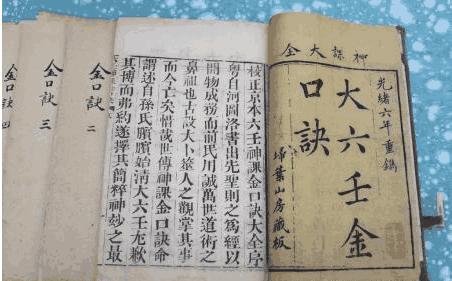 神課大全
光緒六年重鐫
大六壬金
口訣
埽葉山房藏板
校正京本六壬神課金口訣大全序
粵自河圖洛書出先聖則之爲經以
開物成務而前民用誠萬世道術之
鼻祖也古設大卜簭人之觀掌其事
而今亡矣惜哉世傳神課金口訣命
謂述自孫氏臏始清大六壬尢歉
其搏而弗約遂擇其簡粹神玅之最
金口訣 二
金口訣 三
金口訣 四